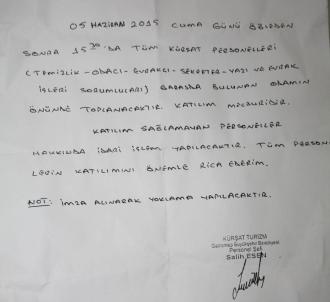 05 HAZİRAN 2015 CUMA GÜNÜ ÖĞLEDEN
SONRA 15 DA TÜM KÜRŞAT PERSONELLERİ
(TEMİZLİK-ODACI-EVRAKCI-SEKRETER-YAZI VE EVRAK
İŞLERİ SORUMLULARI) GARAJDA BULUNAN ODAMIN
ÖNÜNDE TOPLANACAKTIR. KATILIM MECBURİDİR.
KATILIM SAĞLAMAYAN PERSONELLER
HAKKINDA İDARİ İŞLEM YAPILACAKTIR. TÜM PERSONEL
LERİN KATILIMINI ÖNEMLE RİCA EDERİM.
NOT: İMZA ALINARAK YOKLAMA YAPILACAKTIR.
KÜRŞAT TURİZM
Gaziantep Büyükşehir Belediyesi
Personel Şefi
Salih ESEN